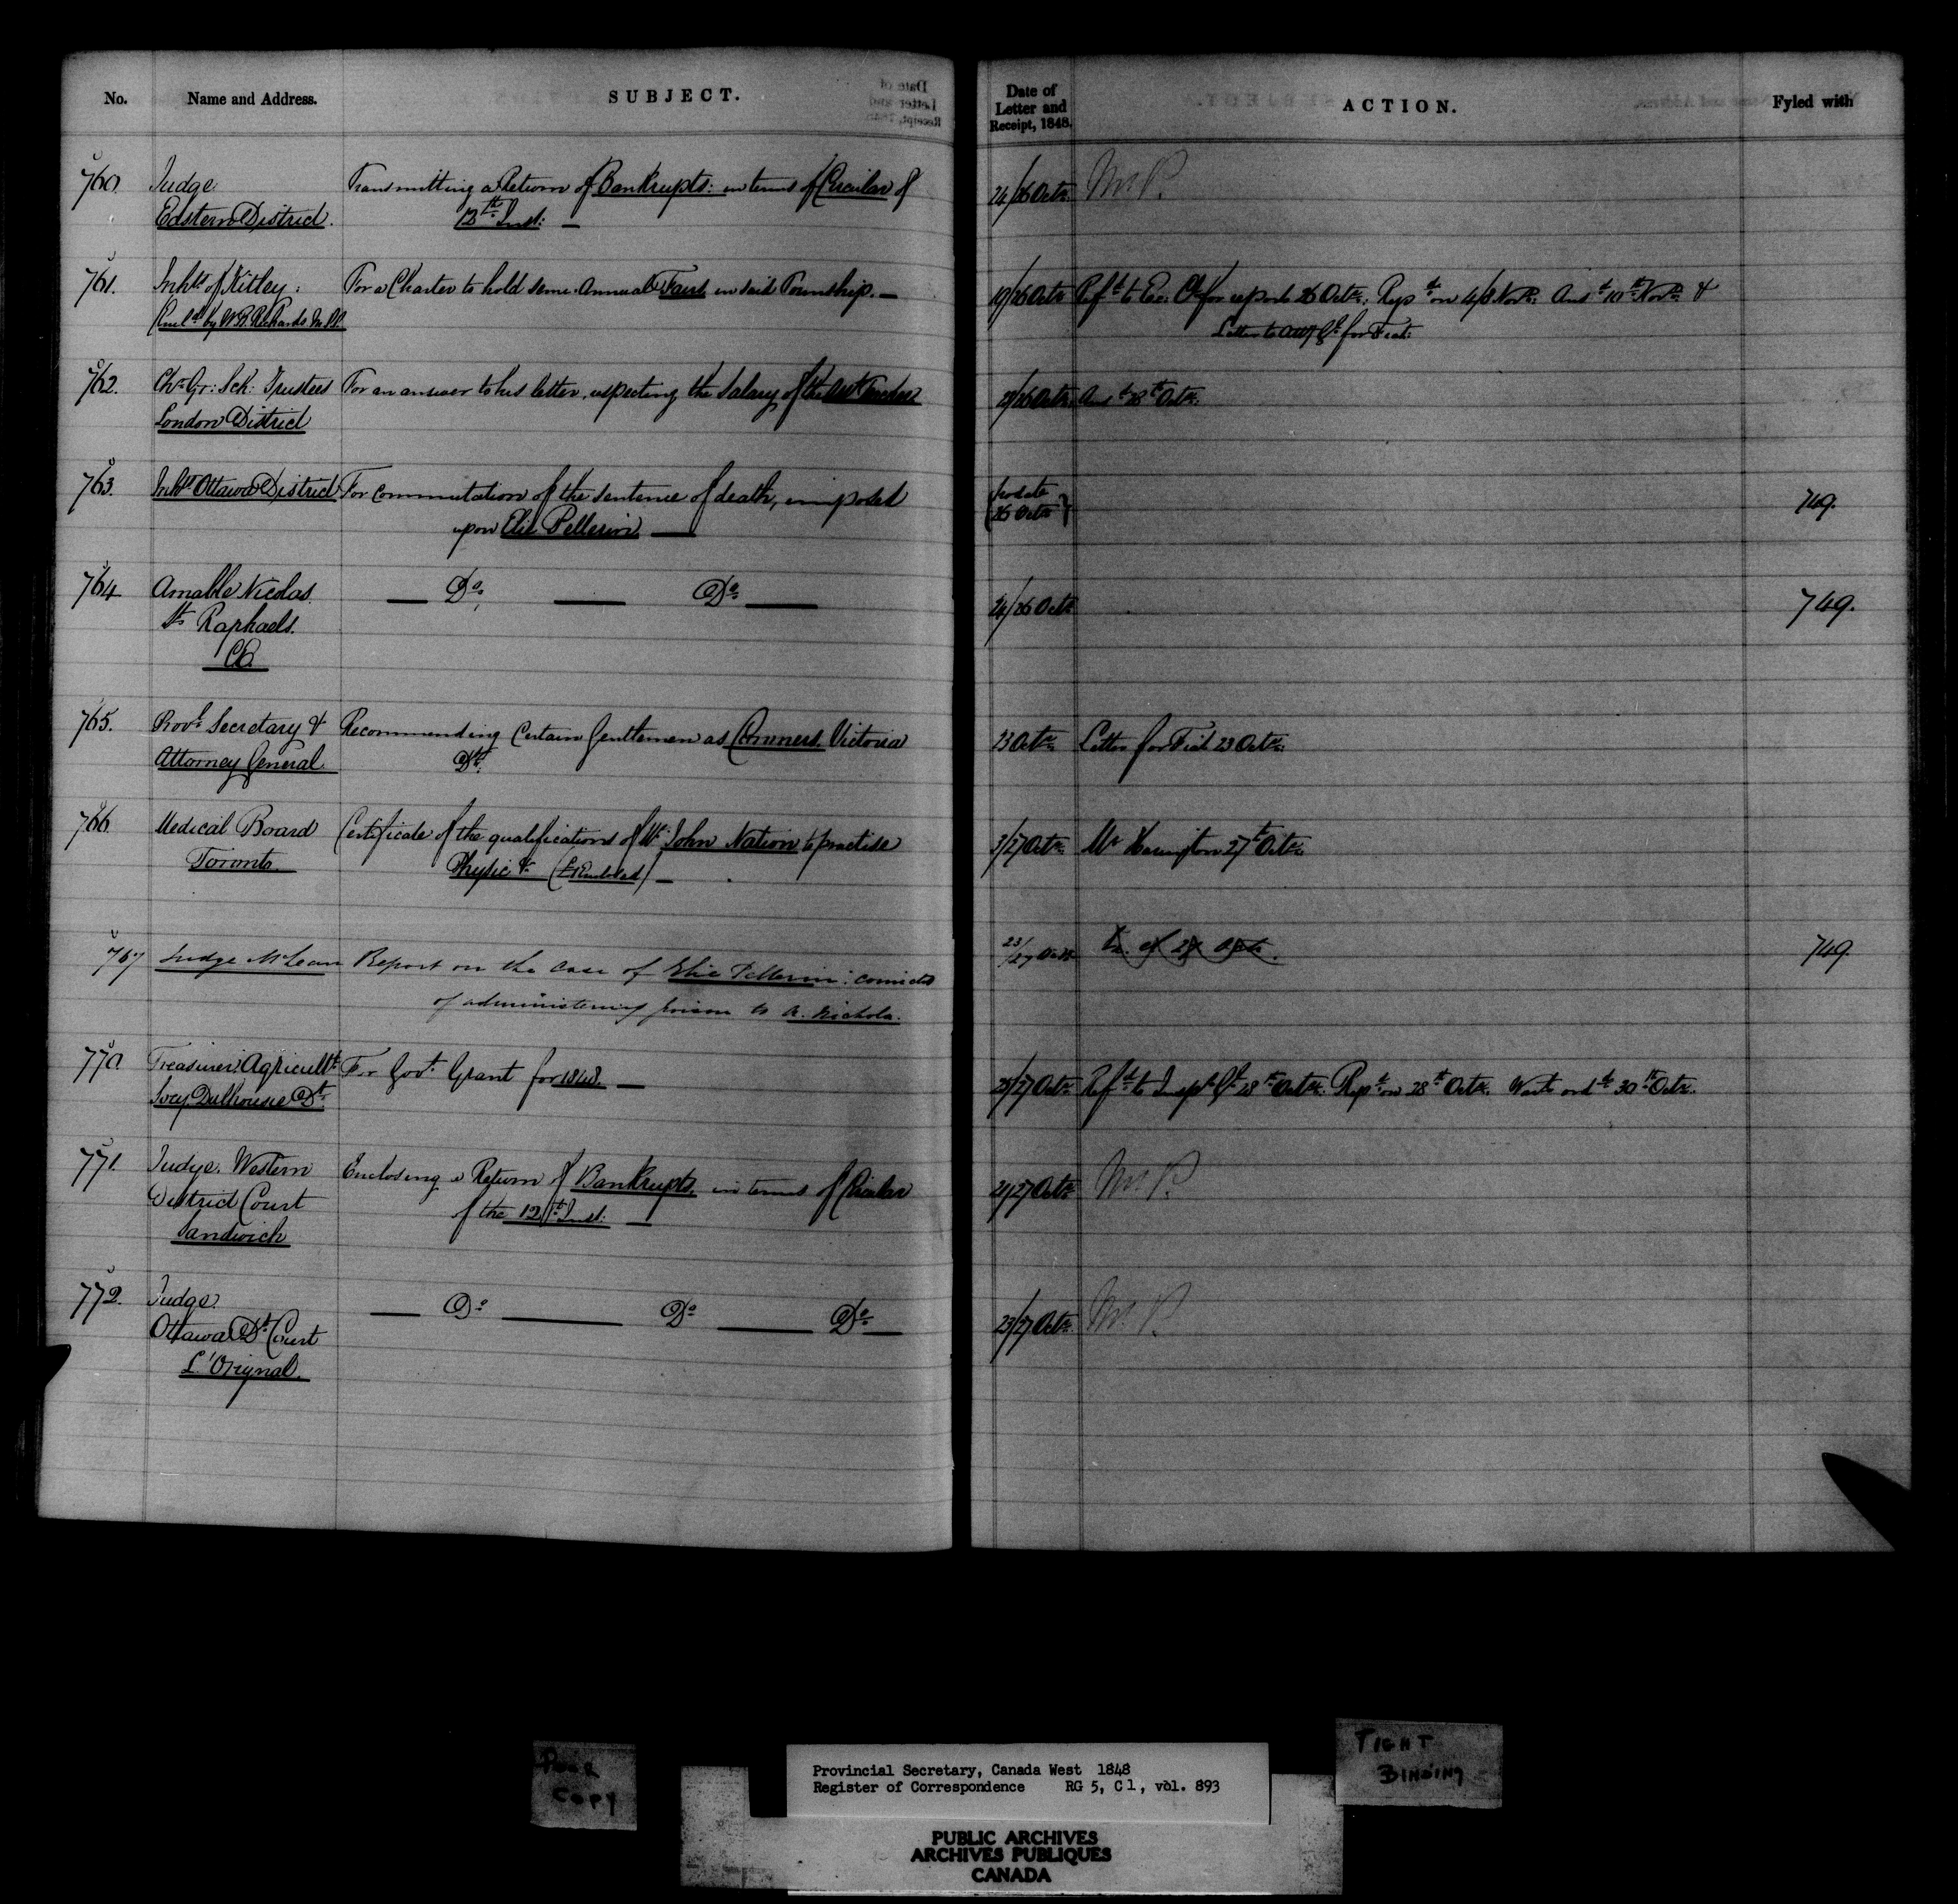 No. Name and Address. SUBJECT. Date of Letter and Receipt, 1848. ACTION. Fyled with
760. Judge Transmitting a Return of Bankrupts: in terms of Circular of 24/26 Octr. M. P.
Eastern District. 12th Inst: —
761. Inhts of Kitley: For a Charter to hold semi-Annual Fairs in said Township. — 19/26 Octr Refd to Exe. Cl for report 26 Octr: Repd on 4/8 Novr. Ansd 10th Novr &
by W. B. Richards M.P.P. Letter to Atty Gl for Fiat:
762. Chn Gr: Sch: Trustees For an answer to his letter, respecting the Salary of the Asst Teacher 26 Octr. Ansd 28th Octr.
London District
763. Inhts Ottawa District For commutation of the sentence of death, imposed (no date 749.
upon Elie Pellerin — 26 Octr)
764 Amable Nicolas — Do, — Do — 24/26 Octr 749.
St Raphaels.
765. Provl Secretary & Recommending Certain Gentlemen as Coroners Victoria 23 Octr. Letter for Fiat 23 Octr.
Attorney General Dt.
766. Medical Board Certificate of the qualifications of Mr John Nation to practise 3/27 Octr. Mr Harington 27th Octr.
Toronto. Physic & —
767 Judge McLean Report on the case of Elie Pellerin: convicted 23/27 Octr 749.
of administering poison to A. Nichola.
770. Treasurer Agricultl For Govt Grant for 1848. — 27 Octr Refd to Inspr Gl 28th Octr. Repd on 28th Octr. Wart ordd 30th Octr.
Socy Dalhousie Dt.
771. Judge Western Enclosing a Return of Bankrupts, in terms of Circular 21/27 Octr M. P.
District Court of the 12th Inst: —
Sandwich
772. Judge — Do — Do — Do — 23/27 Octr. M. P.
Ottawa Dt Court
L'Orignal.
POOR COPY
TIGHT BINDING
Provincial Secretary, Canada West 1848
Register of Correspondence RG 5, C1, vol. 893
PUBLIC ARCHIVES
ARCHIVES PUBLIQUES
CANADA